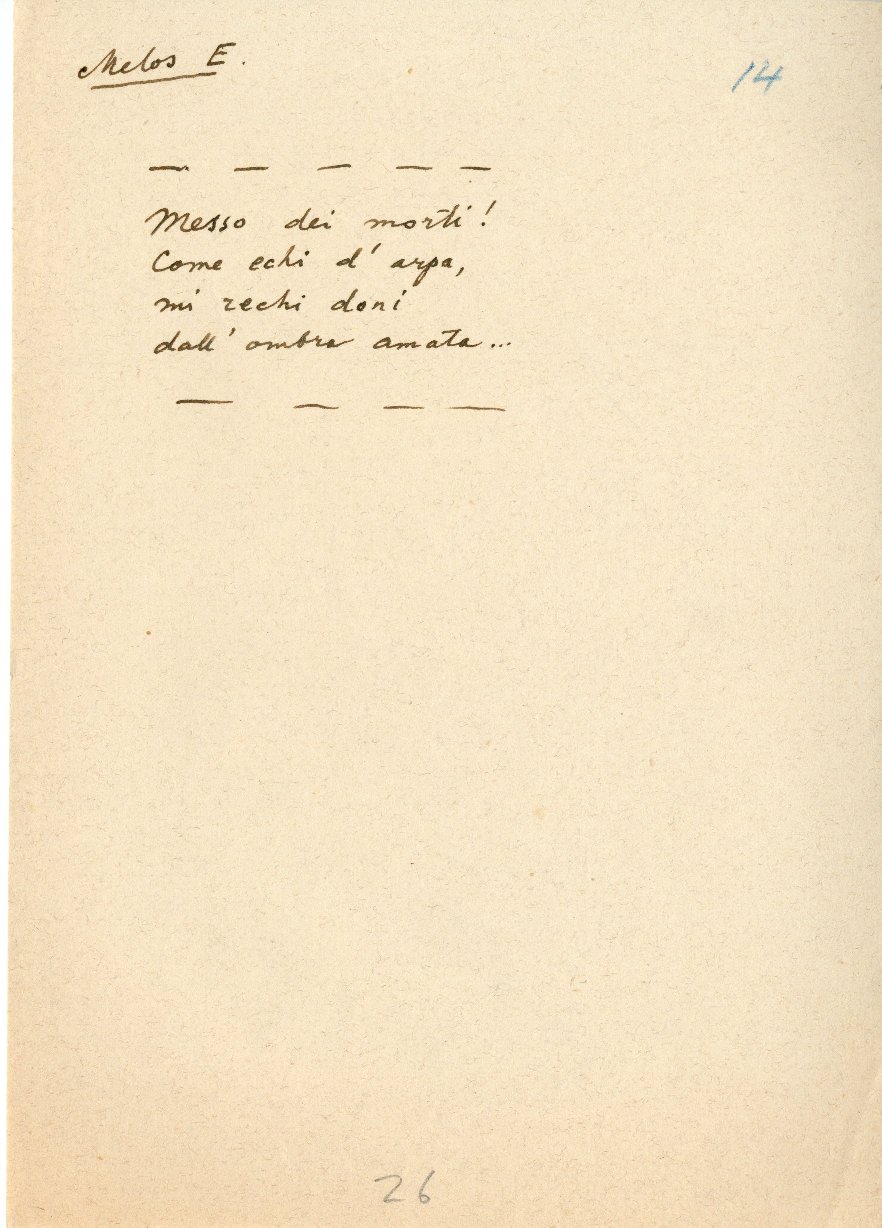 Melos E.
14
— — — — —
Messo dei morti!
Come echi d' arpa,
mi rechi doni
dall' ombra amata...
— — — —
26